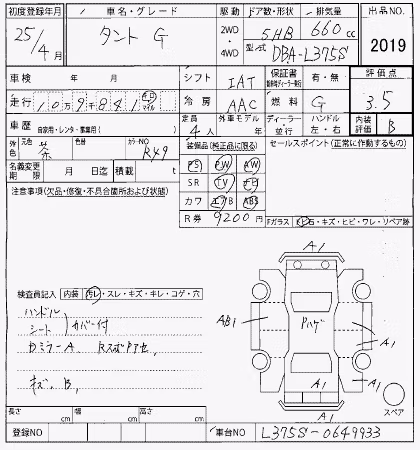 初度登録年月 車名・グレード 駆動 ドア数・形状 排気量 出品NO.
25/4月 タント G 2WD・4WD 5HB 660cc 2019
型式 DBA-L375S
車検 年 月 シフト IAT 保証書 有・無 評価点
走行 109,881 km マイル 冷房 AAC 燃料 G 3.5
車歴 自家用・レンタ・事業用( ) 定員 4人 外車モデル 年 ディーラー・並行 ハンドル 左・右 内装評価 B
外色 元色 茶 色替 カラーNO R49 装備品(純正品に限る) セールスポイント(正常に作動するもの)
名義変更期限 月 日迄 積載 t PS PW AW
注意事項(欠品・修復・不具合箇所および状態) SR TV ナビ
カワ エアB ABS
R券 9200円
Fガラス 石・キズ・ヒビ・ワレ・リペア跡
A1
検査員記入 内装 汚レ・スレ・キズ・キレ・コゲ・穴
ハンドル
シート カバー付
DミラーA
キズ、B、
AB1 Pハゲ A1
A1 A1
A1
スペア
長さ cm 幅 cm 高さ cm
登録NO 車台NO L375S-0649933